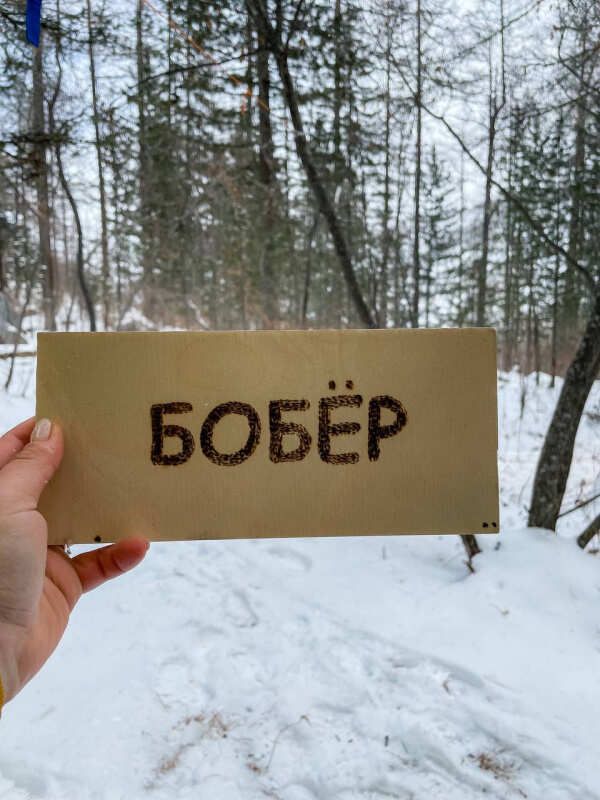 БОБЁР